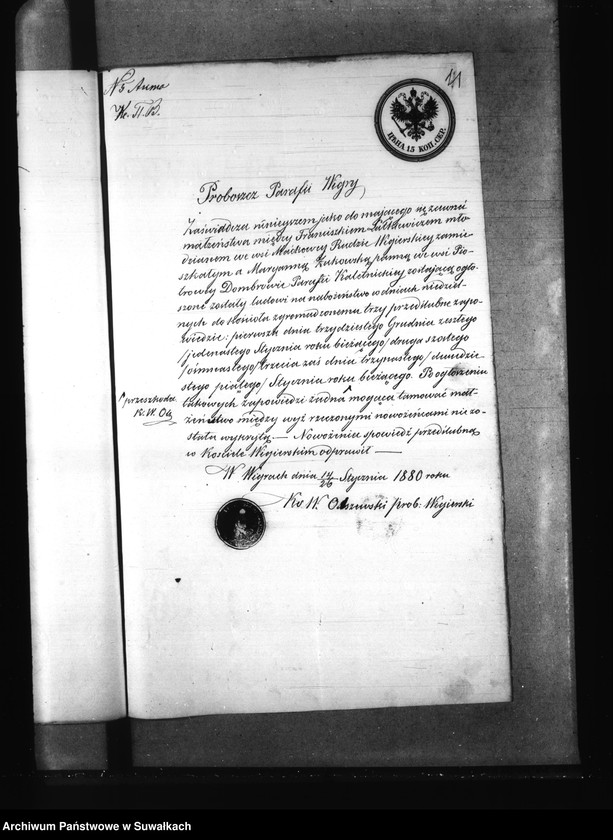 N 5 Anma
Кс. П. В.
141
ЦѢНА 15 КОП. СЕР.
Proboszcz Parafii Wigry
Zaświadcza niniejszem jako do mającego się zawrzeć
małżeństwa między Franciszkiem Lutkiewiczem mło-
dzianem we wsi Maćkowej Rudzie Wigierskiej zamie-
szkałym a Maryanną Żukowską panną we wsi Pio-
trowej Dombrowie Parafii Kaletnickiej zostającą ogło-
szone zostały ludowi na nabożeństwo w dniach niedziel-
nych do kościoła zgromadzonemu trzy przedślubne zapo-
wiedzie: pierwsza dnia trzydziestego Grudnia zeszłego
/jedenastego Stycznia roku bieżącego/ druga szóstego
/ośmnastego/ trzecia zaś dnia trzynastego/ dwudzie-
stego piątego/ Stycznia roku bieżącego. Po ogłoszeniu
takowych zapowiedzi żadna ^ mogąca tamować mał-
żeństwo między wyż rzeczonymi nowożeńcami nie zo-
stała wykrytą. — Nowożenia spowiedź przedślubną
w Kościele Wigierskim odprawił —
^ przeszkoda
Ks. W. Ols
W Wigrach dnia 14/26 Stycznia 1880 roku
Ks W. Olszewski prob. Wigierski
Archiwum Państwowe w Suwałkach